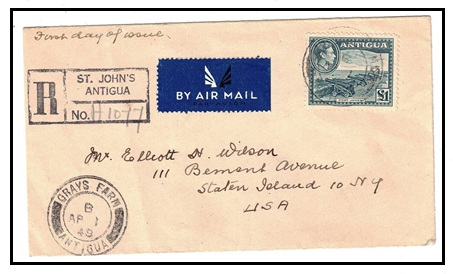 First day of issue.
R
ST. JOHN'S
ANTIGUA
No.
BY AIR MAIL
PAR AVION
ANTIGUA
£1
Mr. Elliott H. Wilson
111 Bement Avenue
Staten Island 10 NY
USA
GRAYS FARM
B
AP 1
49
ANTIGUA